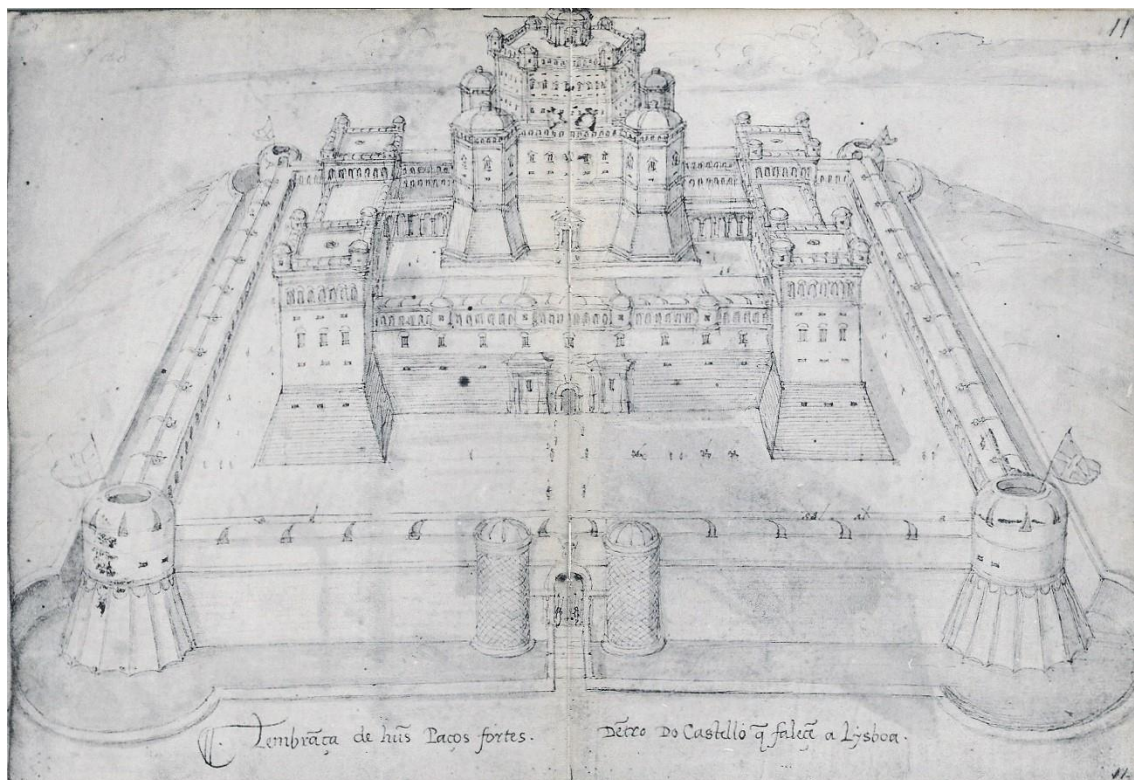 11
Lembrãça de hũs Paços fortes. Dẽtro Do Castello q̃ faleçẽ a Lysboa.